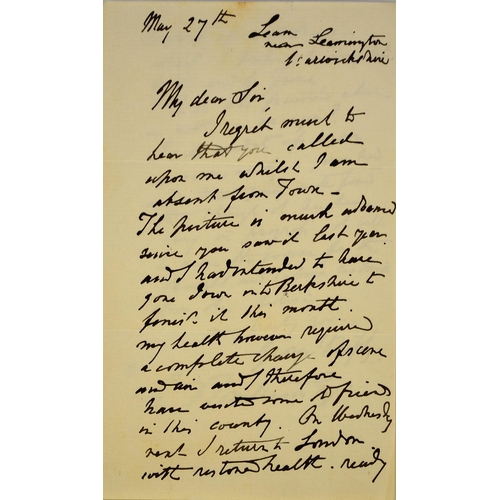 May 27th
Leam
near Leamington
Warwickshire
My dear Sir,
I regret much to
hear that you called
upon me whilst I am
absent from Town -
The picture is much advanced
since you saw it last year
and I had intended to have
gone down into Berkshire to
finish it this month.
my health however required
a complete change of scene
and air and I therefore
have come to friends
in this county. On Wednesday
next I return to London
with restored health. ready